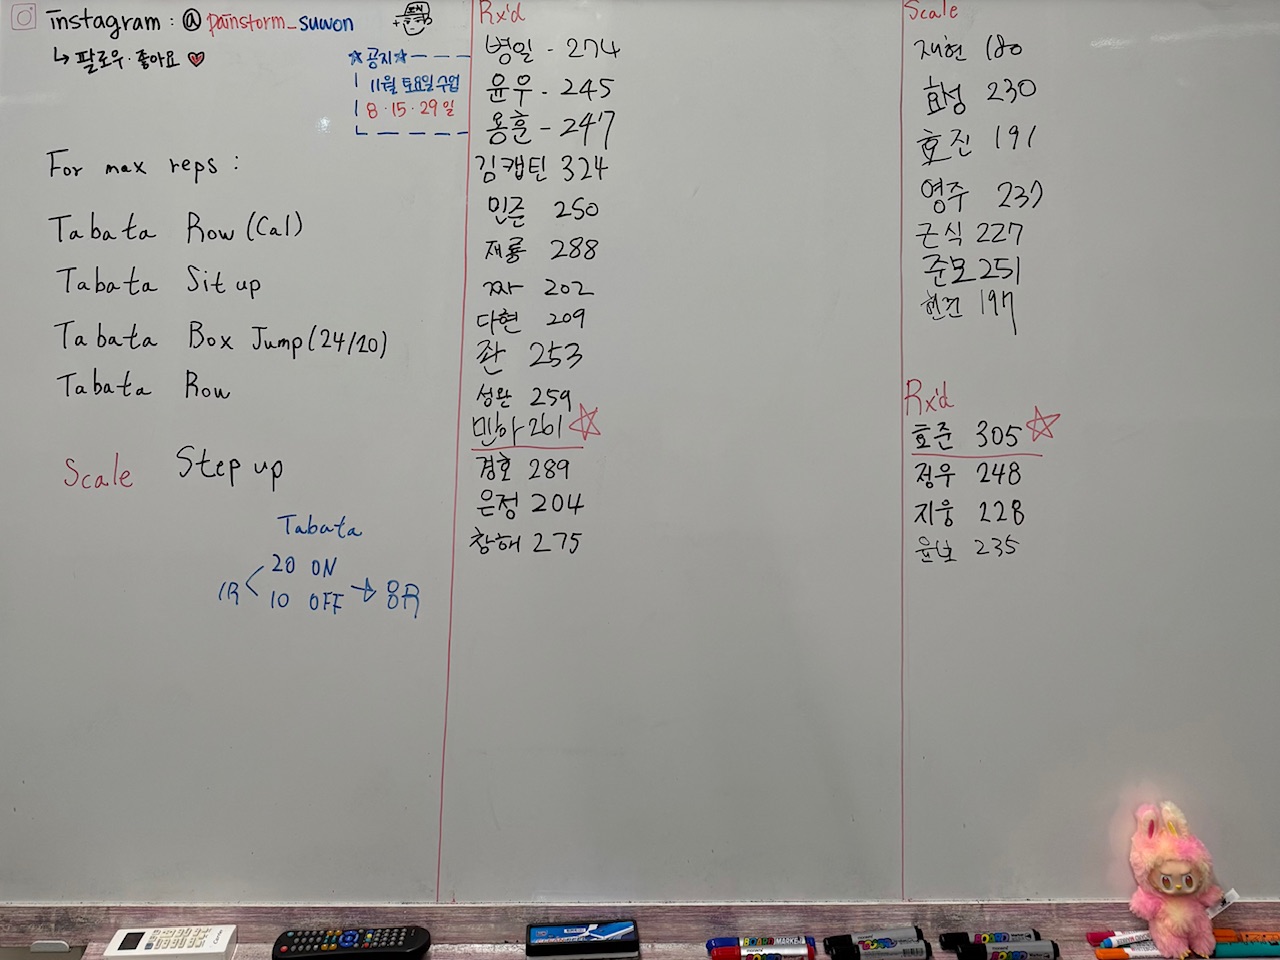 instagram : @ painstorm_suwon
↳ 팔로우·좋아요 ♥
☆공지☆
11월 토요일 수업
8 · 15 · 29 일
For max reps :
Tabata Row (Cal)
Tabata Sit up
Tabata Box Jump (24/20)
Tabata Row
Scale Step up
Tabata
1R < 20 ON
10 OFF → 8R
Rx'd
병일 - 274
윤우 - 245
용훈 - 247
김캡틴 324
민준 250
재룡 288
짜 202
다현 209
좐 253
성완 259
민하 261 ☆
경호 289
은정 204
창해 275
Scale
재헌 180
효성 230
호진 191
영주 237
근식 227
준모 251
197
Rx'd
효준 305 ☆
정우 248
지웅 228
235
BOARD MARKER
BOARD